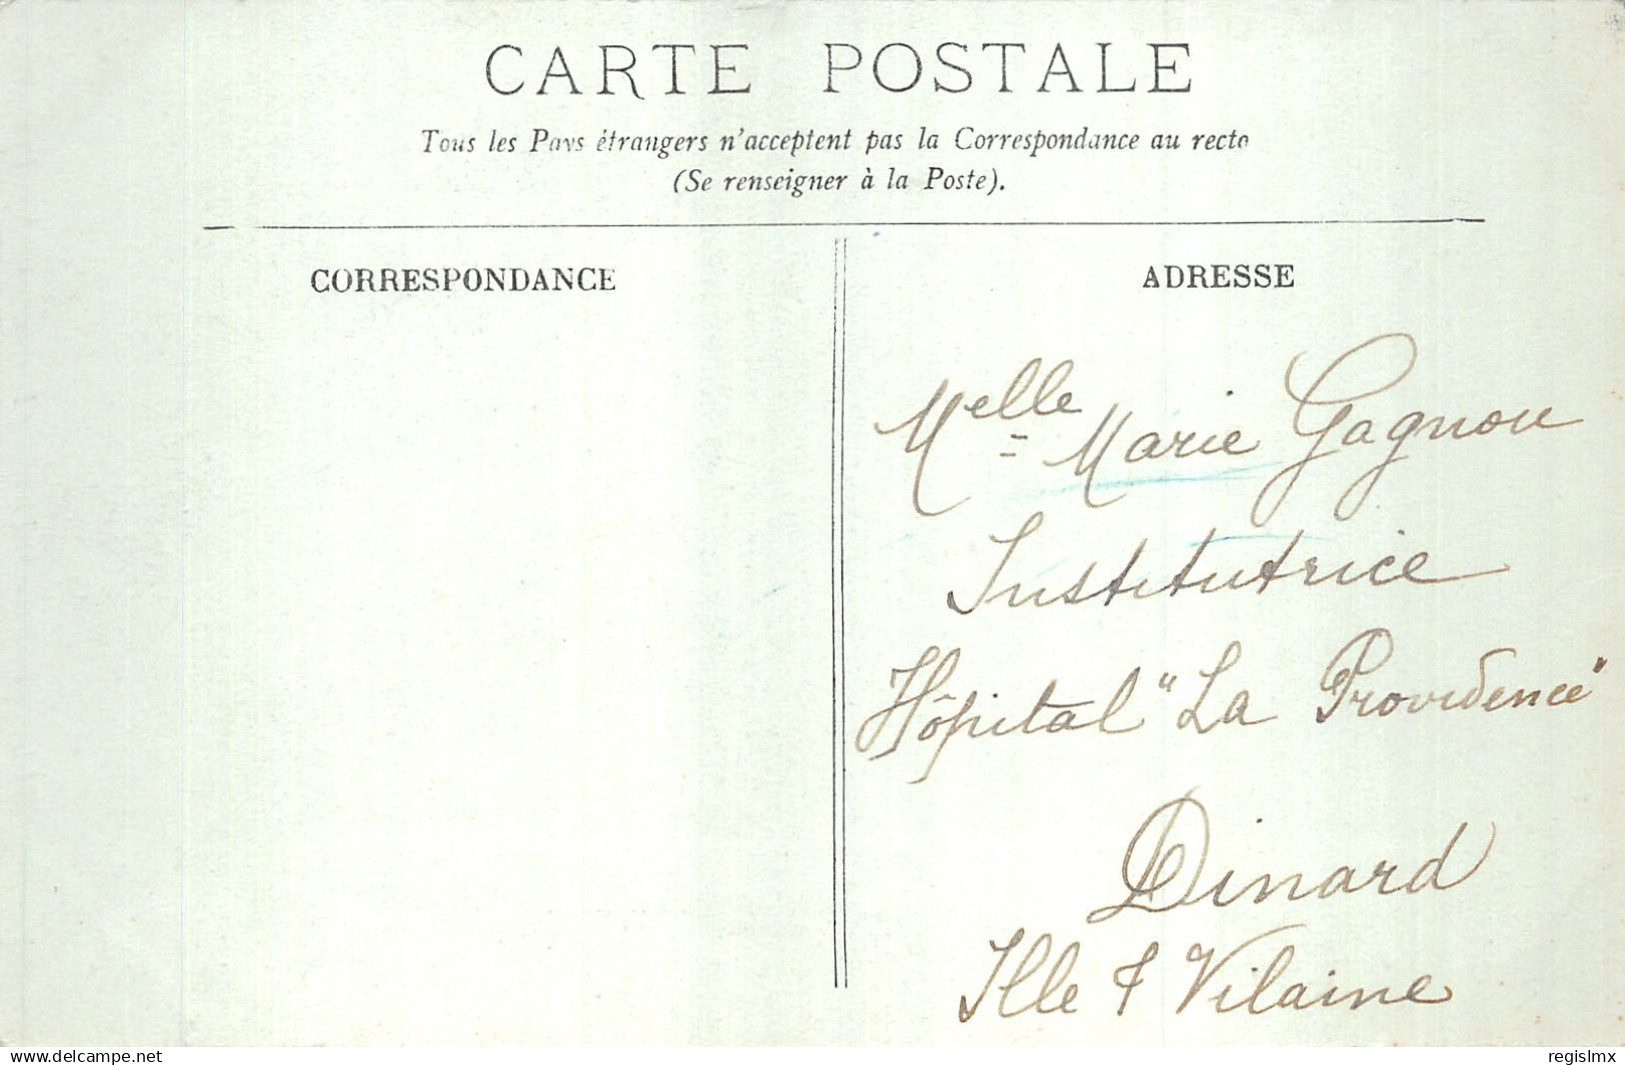 CARTE POSTALE
Tous les Pays étrangers n'acceptent pas la Correspondance au recto
(Se renseigner à la Poste).
CORRESPONDANCE
ADRESSE
Melle Marie Gagnou
Institutrice
Hôpital "La Providence"
Dinard
Ille & Vilaine
www.delcampe.com
regislmx